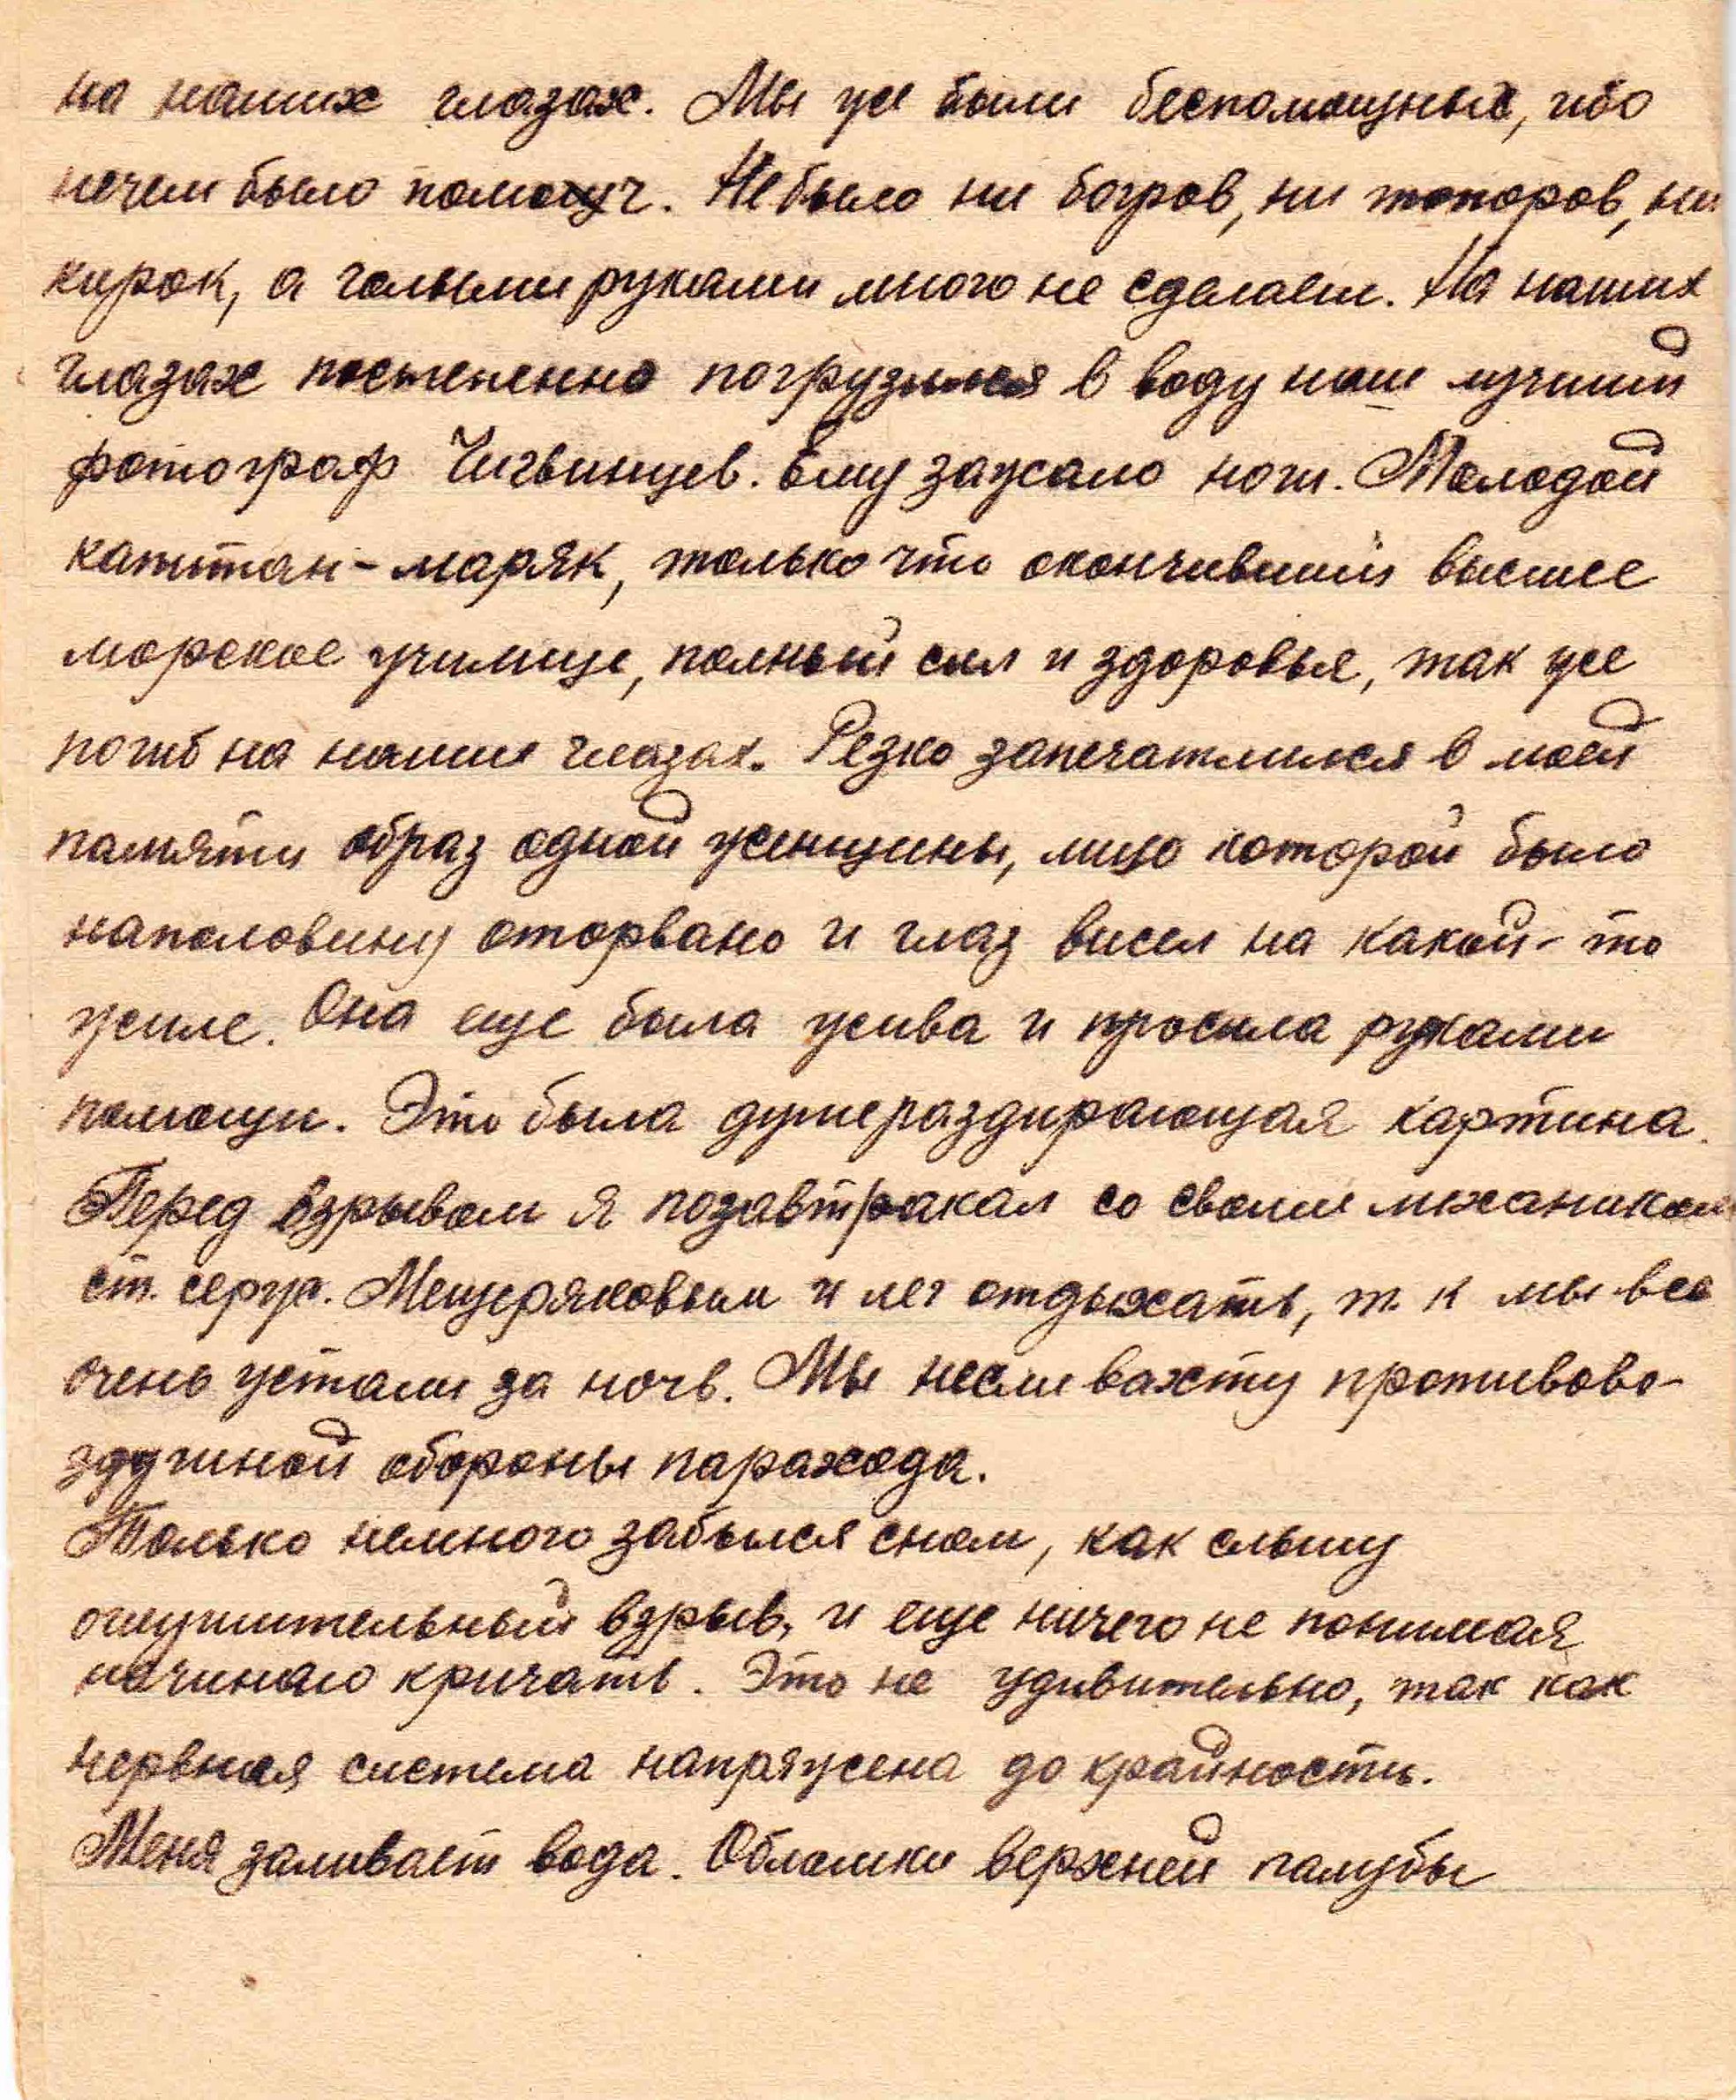 на наших глазах. Мы же были беспомощные, ибо
нечем было помощч. Не было ни багров, ни топоров, ни
кирок, а голыми руками много не сделаем. На наших
глазах постепенно погрузился в воду наш лучший
фотограф Чигвинцев. Ему зажало ноги. Молодой
капитан-маряк, только что окончивший высшее
морское училище, полный сил и здоровья, так же
погиб на наших глазах. Резко запечатлился в моей
памяти образ одной женщины, лицо которой было
наполовину оторвано и глаз висел на какой-то
жиле. Она еще была жива и просила руками
помощи. Это была душераздирающая картина.
Перед взрывом я позавтракал со своим механиком
ст. серж. Мещеряковым и лег отдыхать, т. к мы все
очень устали за ночь. Мы несли вахту противово-
здушной обороны парахода.
Только немного забылся сном, как слышу
оглушительный взрыв, и еще ничего не понимая
начинаю кричать. Это не удивительно, так как
нервная система напряжена до крайности.
Меня заливает вода. Обломки верхней палубы